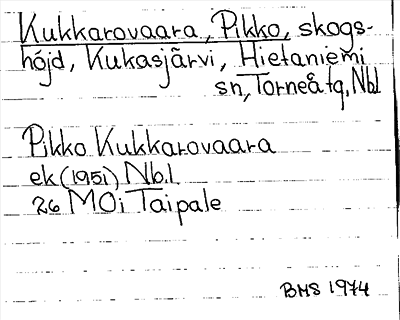 Kukkarovaara, Pikko, skogs-
höjd, Kukasjärvi, Hietaniemi
sn, Torneå tg, Nbl
Pikko Kukkarovaara
ek (1951) Nb.l
26 MOi Taipale
BMS 1974